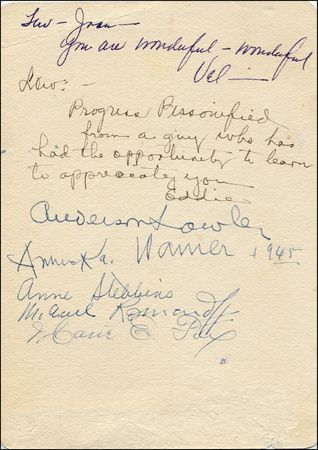 Lew - Joan -
you are wonderful - wonderful
Vel -
Lew: -
Progress Personified
from a guy who has
had the opportunity to learn
to appreciate you
Eddie
Anderson Lawler
Warner 1945
Anne Stebbins
Michael Romanoff
Marie E.